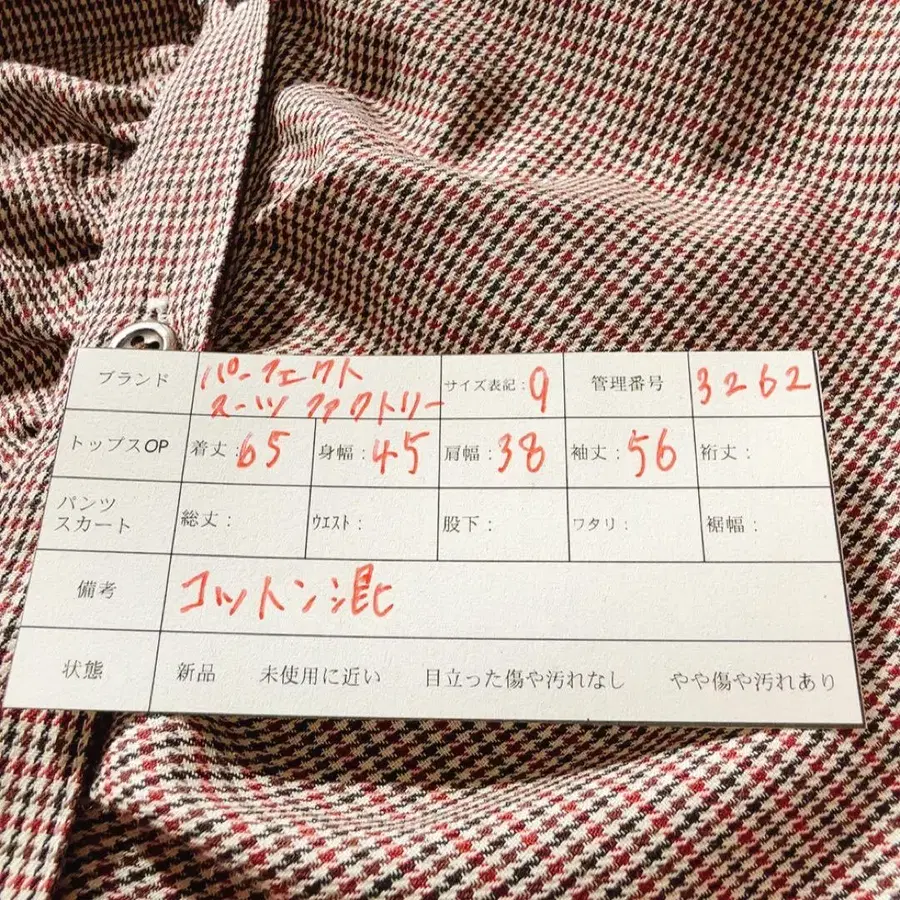 ブランド パーフェクト スーツ ファクトリー サイズ表記：9 管理番号 3262
トップスOP 着丈：65 身幅：45 肩幅：38 袖丈：56 裄丈：
パンツ スカート 総丈： ｳｴｽﾄ： 股下： ワタリ： 裾幅：
備考 コットン混
状態 新品 未使用に近い 目立った傷や汚れなし やや傷や汚れあり